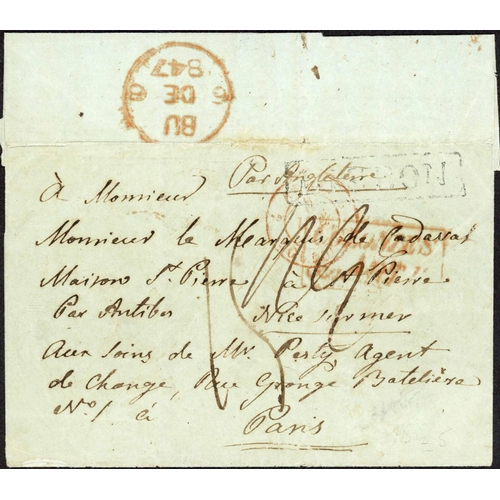 BU
6 DE 6
847
Par Angleterre
à Monsieur
Monsieur le Marquis de Cadassas
Maison St. Pierre à St. Pierre
Par Antibes Nice sur mer
Aux Soins de Mr. Agent
de Change, Rue Grange Batelière
No. 1 à Paris